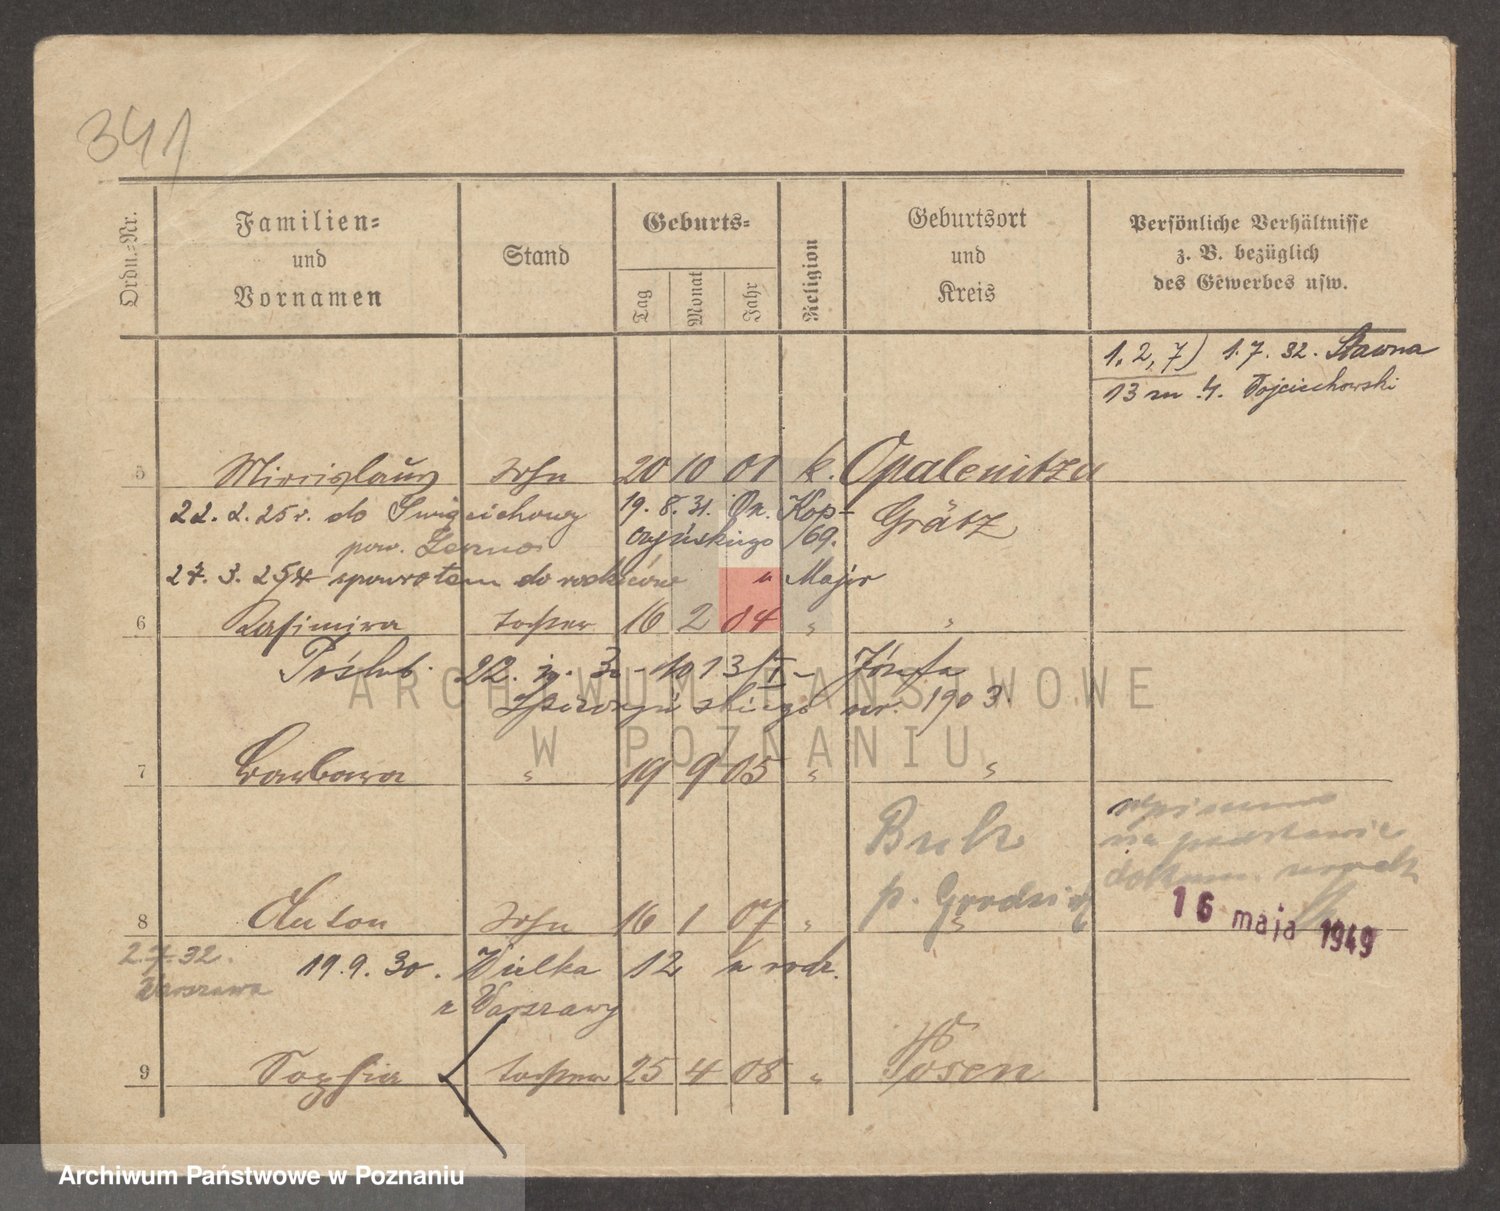 341
Ordn.-Nr.
Familien-
und
Vornamen
Stand
Geburts-
Tag
Monat
Jahr
Religion
Geburtsort
und
Kreis
Persönliche Verhältnisse
z. B. bezüglich
des Gewerbes usw.
1, 2, 7) 1.7.32. Sławna
13 m 4. Wojciechowski
5 Sohn 20 10 01 k. Opalenitza
22.2.25r. do Święciechowy 19.8.31. Kop-
pow. Leszno czyńskiego /69. Grätz
27.3.25r spowrotem do rodziców " Major
6 Kasimira Tochter 16 2 04 " "
Poślub. 22. 30 - 1013/ - Józefa
ur. 1903.
7 Barbara " 19 9 05 " "
Buk
p. Grodzisk
wpisano
na podstawie
dokum. urzęd.
16 maja 1949
8 Anton Sohn 16 1 07 " "
2.7.32. 19.9.30. Wielka 12 u rodz.
Warszawa z Warszawy
9 Sophia Tochter 25 4 08 " Posen
ARCHIWUM PAŃSTWOWE
W POZNANIU
Archiwum Państwowe w Poznaniu